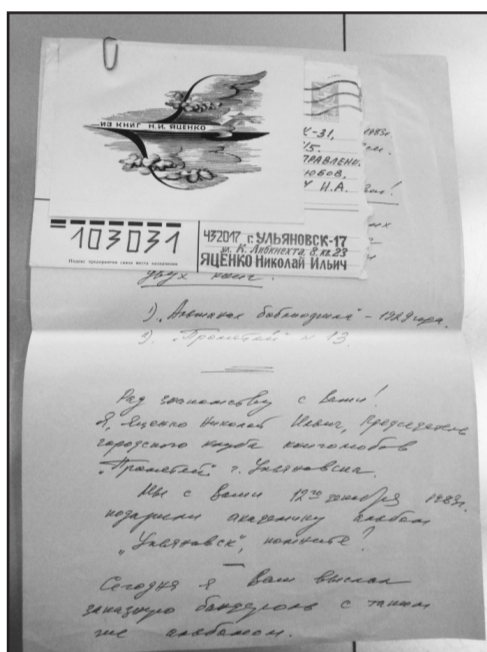 ИЗ КНИГ Н.И. ЯЦЕНКО
К-31,
ПРАВЛЕНО.
ЮБОВ,
И.А.
103031
Индекс предприятия связи места назначения
432017 г. УЛЬЯНОВСК-17
ул. К. Либкнехта, 8, кв. 23
ЯЦЕНКО Николай Ильич
двух книг.
1). „Альманах библиофила" – 1929 года.
2). „Прометей" № 13.
Рад знакомству с Вами!
Я, Яценко Николай Ильич, председатель
городского клуба книголюбов
„Прометей" г. Ульяновска.
Мы с Вами 12го декабря 1983г.
подарили академику альбом
„Ульяновск", помните?
Сегодня я Вам выслал
заказную бандероль с таким
же альбомом.